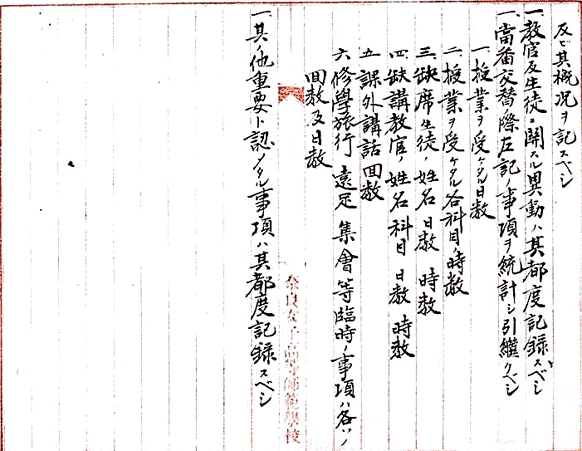 及ビ其概況ヲ記スベシ
一、教官及生徒ニ関スル異動ハ其都度記録スベシ
一、當番交替ノ際左記ノ事項ヲ統計シ引継グベシ
一、授業ヲ受ケタル日数
二、授業ヲ受ケタル各科目ノ時数
三、缺席生徒ノ姓名 日数 時数
四、缺講教官ノ姓名 科目 日数 時数
五、課外講話ノ回数
六、修學旅行 遠足 集會等臨時ノ事項ハ各々ノ
回数及日数
奈良女子高等師範學校
一、其ノ他重要ト認メタル事項ハ其都度記録スベシ